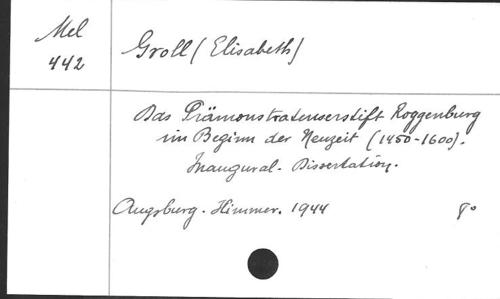 Mel
442
Groll (Elisabeth)
Das Prämonstratenserstift Roggenburg
im Beginn der Neuzeit (1450-1600).
Inaugural-Dissertation.
Augsburg. Himmer. 1944 8°